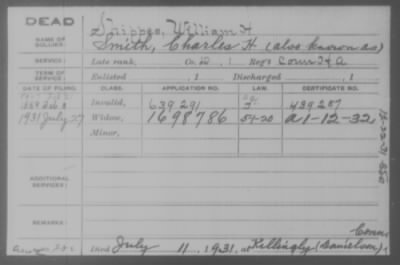 DEAD
Skippee, William H
NAME OF SOLDIER: Smith, Charles H. (also known as)
SERVICE: Late rank, Co. D, 1 Reg't Conn H A
TERM OF SERVICE: Enlisted , 1 Discharged , 1
DATE OF FILING. CLASS. APPLICATION NO. LAW. CERTIFICATE NO.
Invalid, 639 291 439287
1931 July 27 Widow, 1698786 a 1-12-32
Minor,
ADDITIONAL SERVICES:
REMARKS:
Conn
Died July 11, 1931, at Killingly (Danielson)